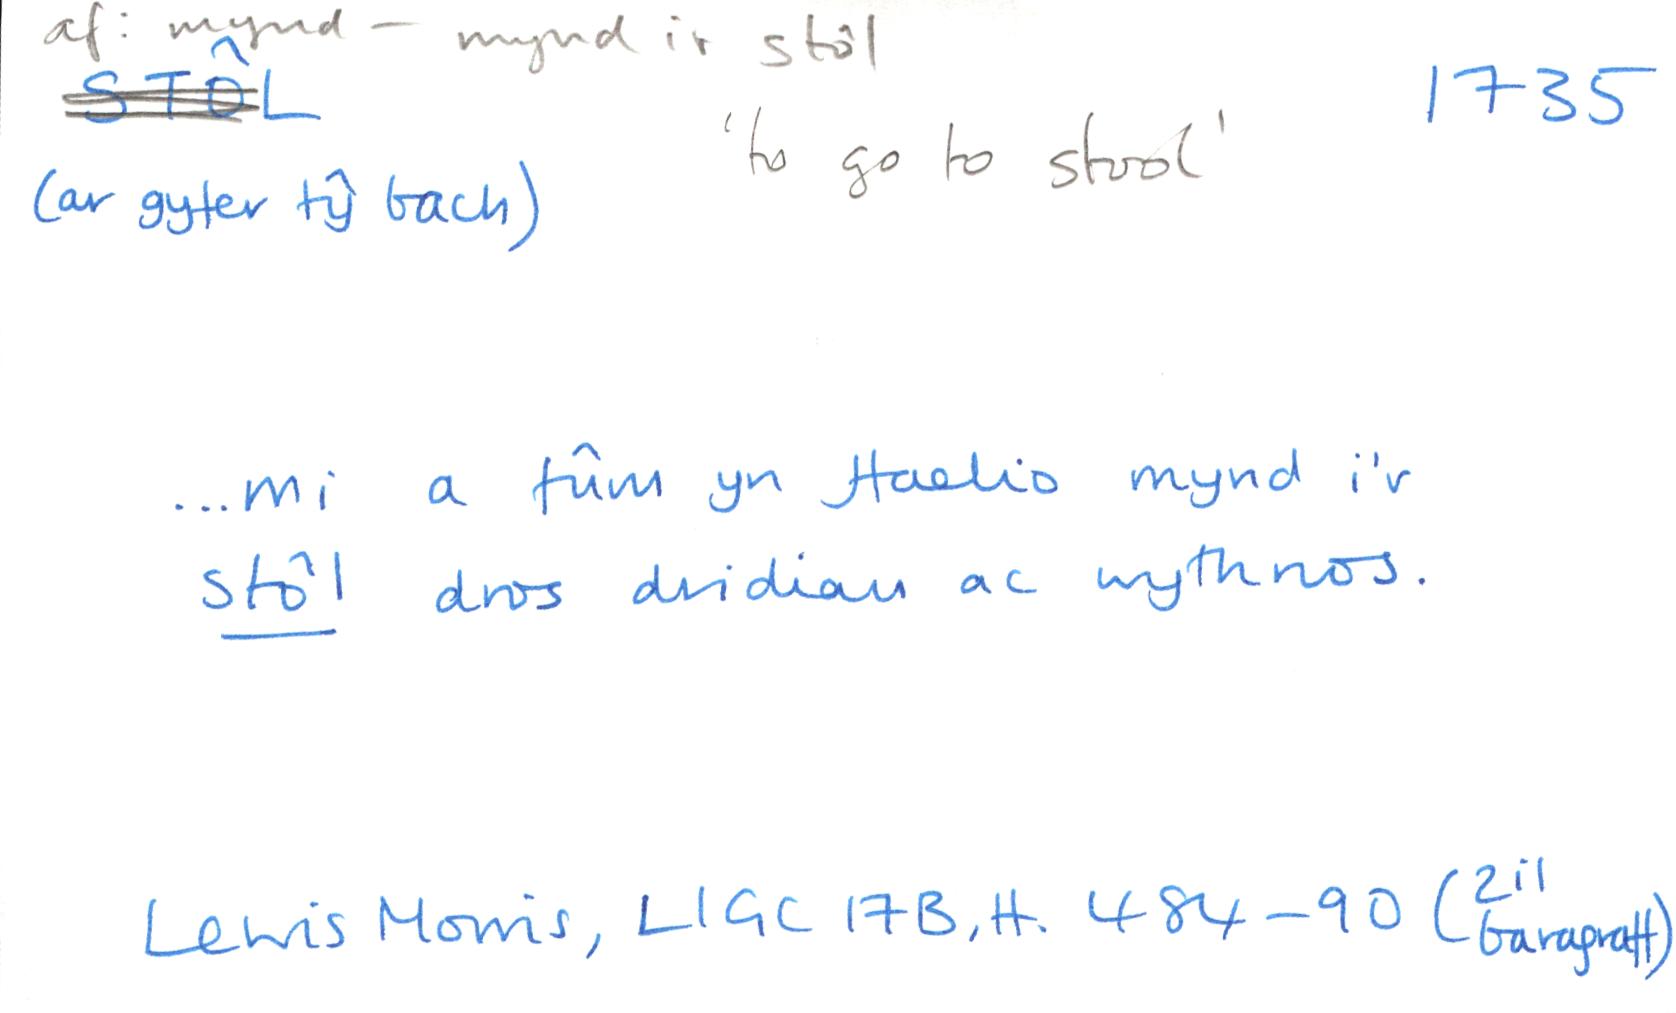 af: mynd – mynd i'r stôl
STÔL
1735
'to go to stool'
(ar gyfer tŷ bach)
...mi a fûm yn ffaelio mynd i'r
stôl dros dridiau ac wythnos.
Lewis Morris, LlGC 17B, ff. 484–90 (2il baragraff)